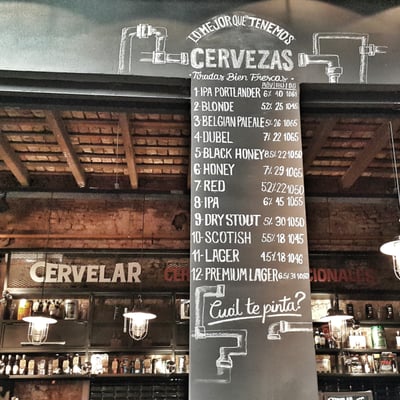 LO MEJOR QUE TENEMOS
CERVEZAS
Tiradas Bien Frescas
1-IPA PORTLANDER 6% 40 1065
2-BLONDE 5% 25 1045
3-BELGIAN PALE ALE 5% 26 1065
4-DUBEL 7% 22 1065
5-BLACK HONEY 8.5% 22 1050
6-HONEY 7% 29 1065
7-RED 5% 22 1050
8-IPA 6% 45 1055
9-DRY STOUT 5% 30 1050
10-SCOTISH 5.5% 18 1045
11-LAGER 4.5% 18 1046
12-PREMIUM LAGER
CERVELAR
Cual te pinta?